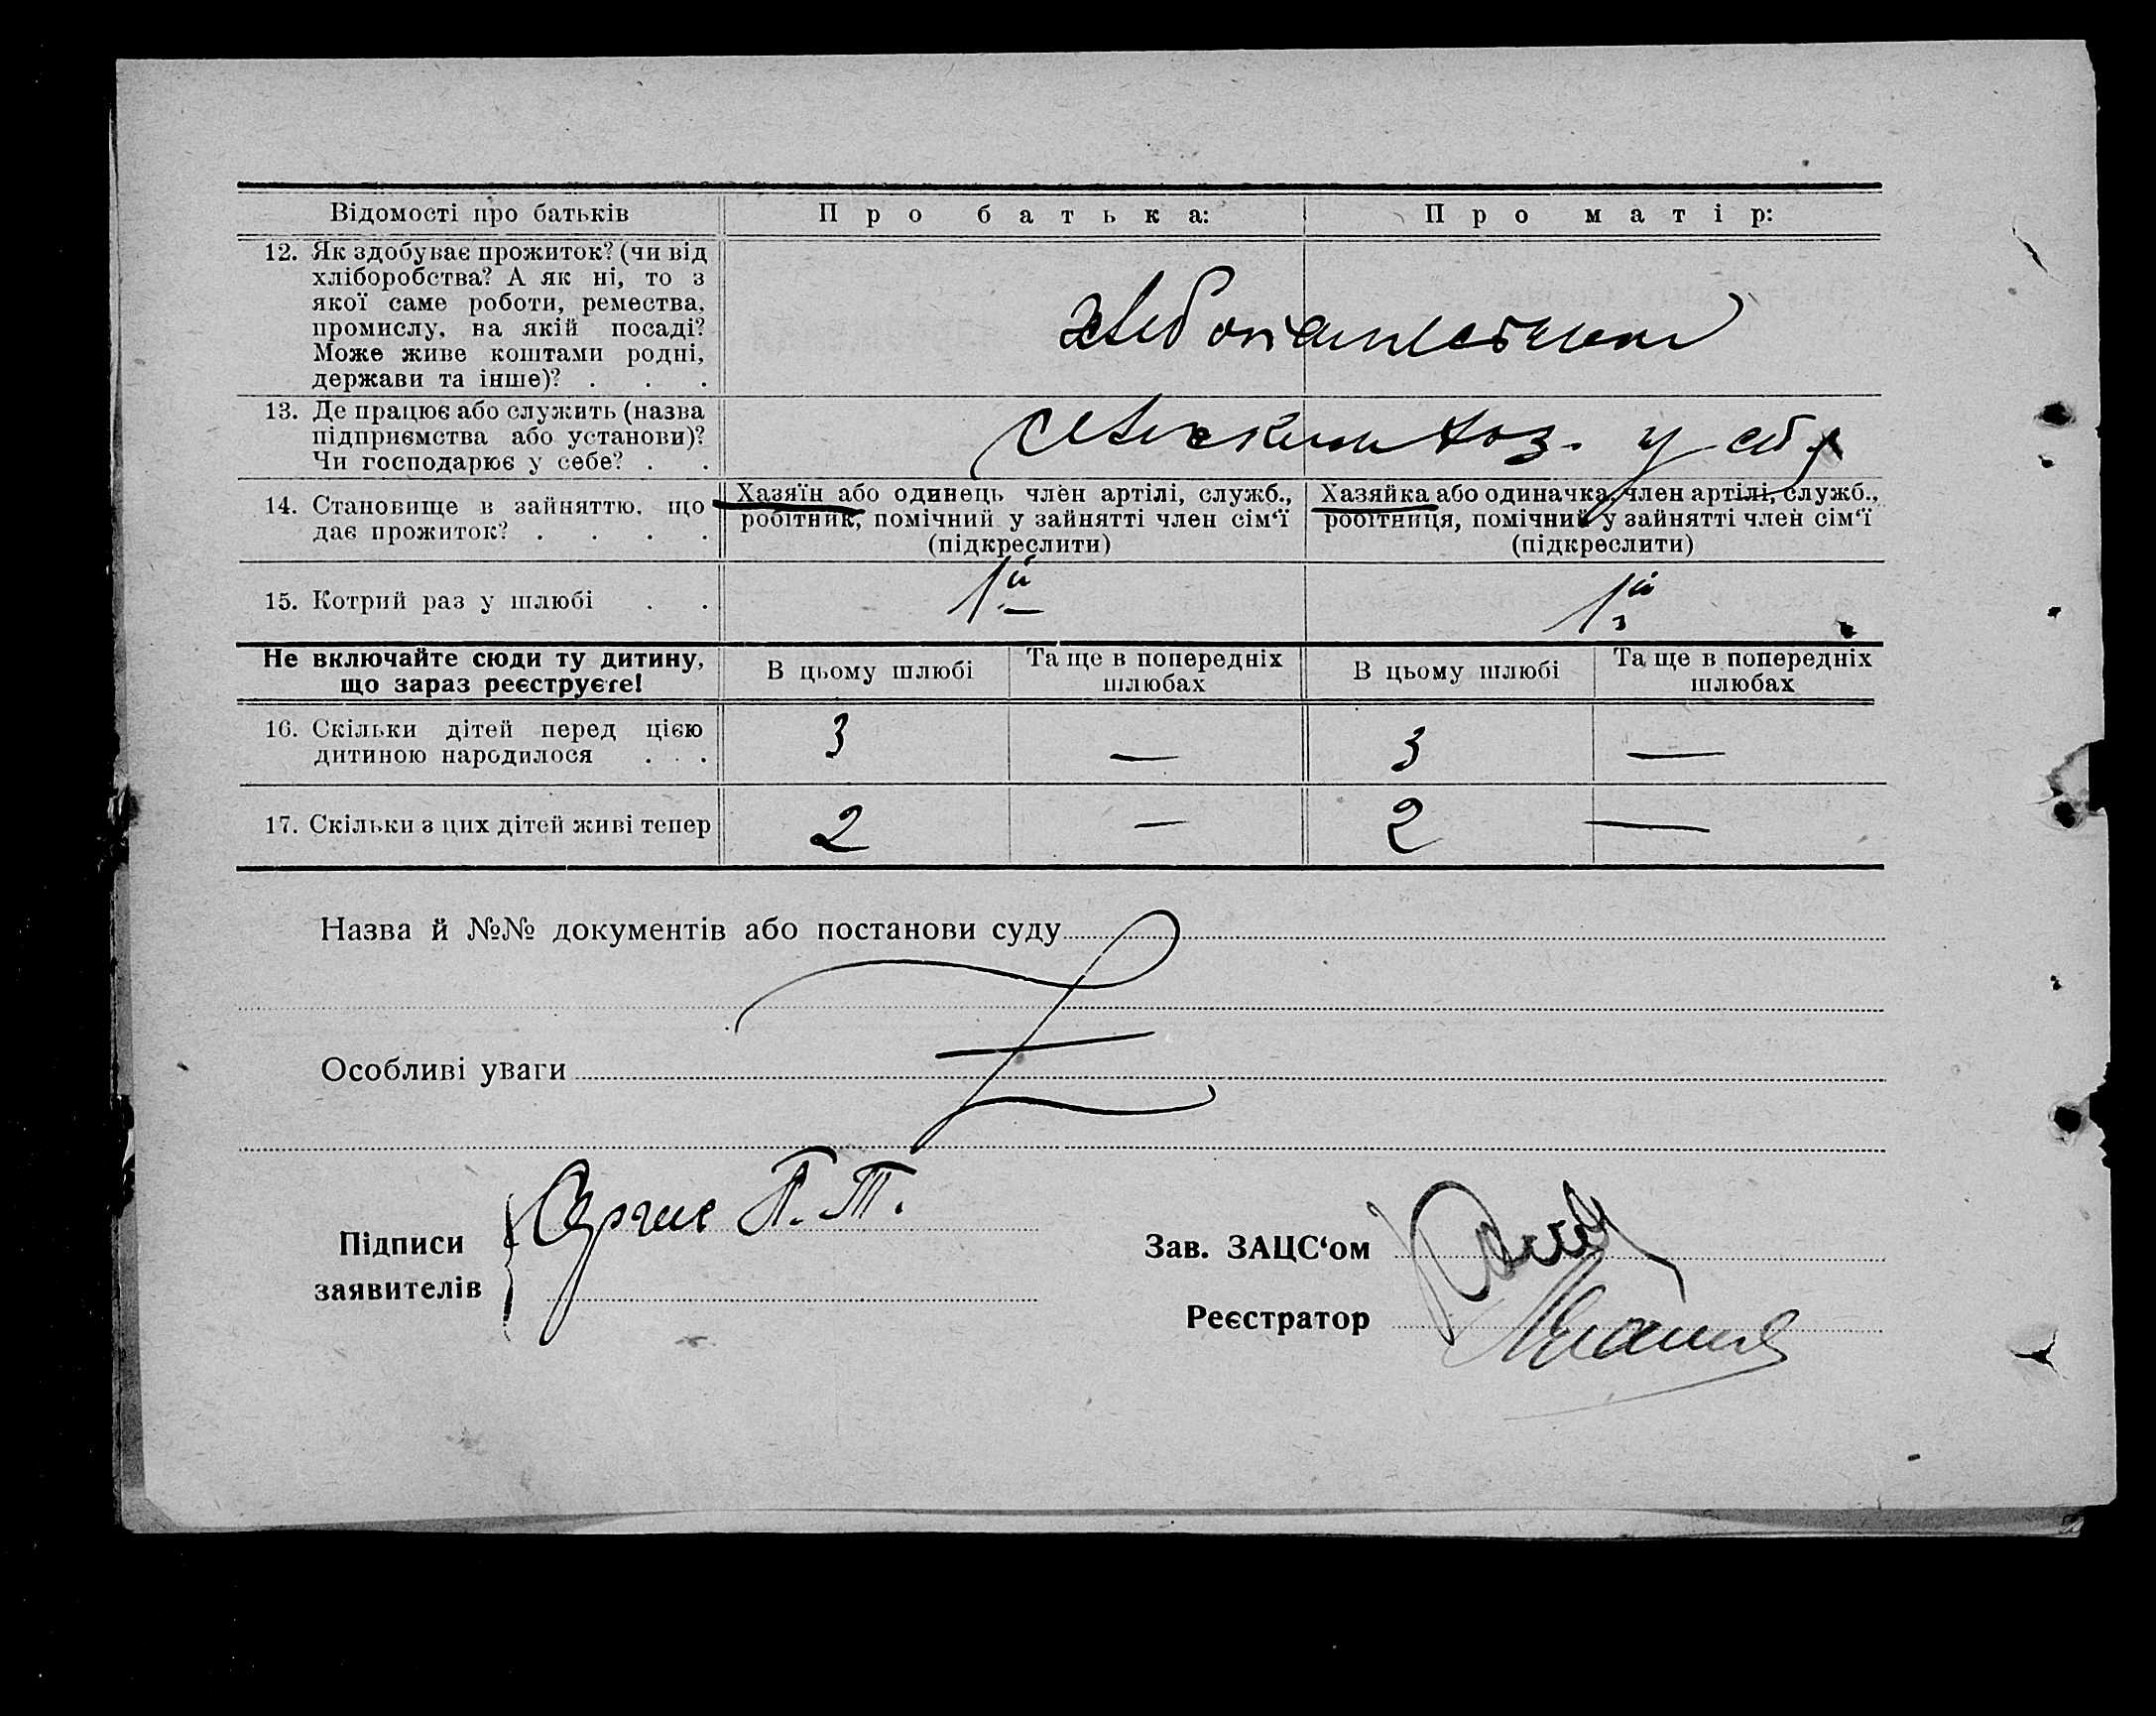 Відомості про батьків
Про батька:
Про матір:
12. Як здобуває прожиток? (чи від
хліборобства? А як ні, то з
якої саме роботи, ремества,
промислу, на якій посаді?
Може живе коштами родні,
держави та інше)? . . .
хлібопашеством
13. Де працює або служить (назва
підприємства або установи)?
Чи господарює у себе? . .
хоз. у себе
14. Становище в зайняттю, що
дає прожиток? . . . .
Хазяїн або одинець член артілі, служб.,
робітник, помічний у зайнятті член сім‘ї
(підкреслити)
Хазяйка або одиначка, член артілі, служб.,
робітниця, помічний у зайнятті член сім‘ї
(підкреслити)
15. Котрий раз у шлюбі . .
1й
1й
Не включайте сюди ту дитину,
що зараз реєструєте!
В цьому шлюбі
Та ще в попередніх
шлюбах
В цьому шлюбі
Та ще в попередніх
шлюбах
16. Скільки дітей перед цією
дитиною народилося . . .
3
—
3
—
17. Скільки з цих дітей живі тепер
2
—
2
—
Назва й №№ документів або постанови суду
Особливі уваги
Підписи
заявителів
П. Т.
Зав. ЗАЦС‘ом
Реєстратор